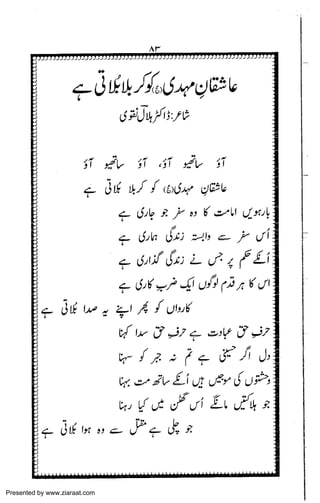 ۸۳
عاشقانِ مہدی(عج) کو کربلا بُلاتی ہے
شاعر: ڈاکٹر ہلال نقوی
آؤ ساتھیو آؤ، آؤ ساتھیو آؤ
عاشقانِ مہدی(عج) کو کربلا بُلاتی ہے
بارہویں امامت کا وہ سفر جو جاری ہے
اُس سفر سے وابستہ زندگی ہماری ہے
اُنکے حکم پر جس نے زندگی گذاری ہے
اس کا ہر قدم لوگوں ایک ضربِ کاری ہے
کارواں کو پھر اپنے یہ صدا بُلاتی ہے
حرفِ حق عبادت ہے حرفِ حق سدا کہنا
دل اگر حسینی ہے تم نہ جبر کو سہنا
وحشتوں کی موجیں ہیں اُنکے ساتھ مت بہنا
جو ہلاکتیں مانگے اُس گھٹن میں کیا رہنا
جو چلی ہے مقتل سے وہ ہوا بُلاتی ہے
Presented by www.ziaraat.com